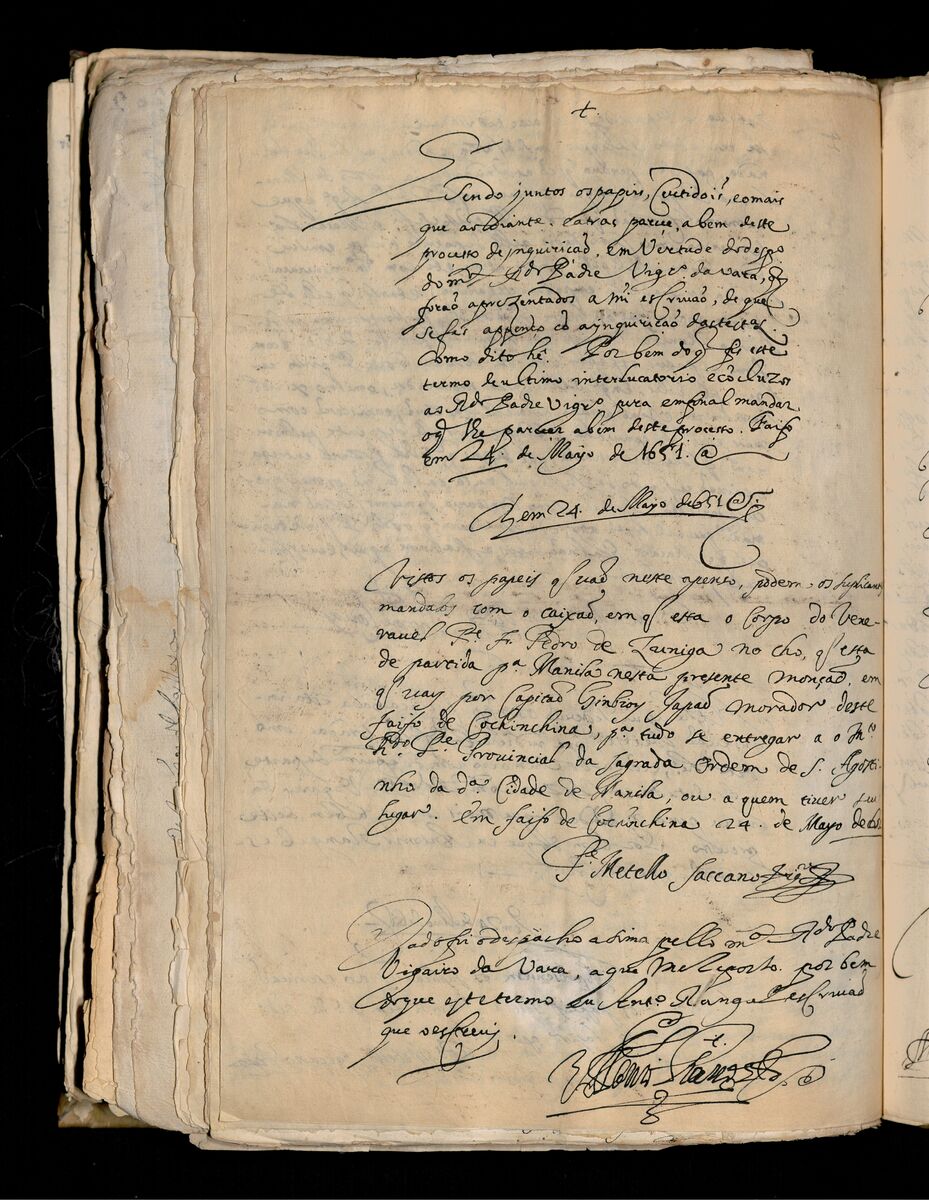 +.
Sendo juntos os papeis, Certidois, e o mais
que ao diante. e atras parece, a bem deste
processo de jnquiricaõ, em Vertude do desp.º
do m.to R.do Padre Vigr.º da vara, q̃
foraõ aprezentados a mỹ escrivaõ, de que
se fas appenço cõ a ynquiricaõ das test.as
Como dito hé. Por bem do q̃ fis este
termo de ultimo interlucatorio e cõcluzos
ao R.do Padre Vigr.º para em final mandar
o q̃ lhe parecer a bem deste processo. Faifo
em 24. de Mayo de 1651. @
Clz em 24. de Mayo de 651 @
Vistos os papeis q̃ vaõ neste apenso, podem os suplicant
mandalos com o caixaõ, em q̃ esta o Corpo do Vene-
ravel P.e Fr. Pedro de Zuniga no cho, q̃ esta
de partida p.a Manila nesta presente monçaõ, em
q̃ vay por Capitaõ Ginbioy Japaõ morador deste
faifo de Cochinchina, p.a tudo se entregar a o M.to
R.do P.e Provincial da Sagrada Ordem de S. Agosti-
nho da d.a Cidade de Manila, ou a quem tiver seu
lugar. Em faifo de Cochinchina 24. de Mayo de 651
P.e Metello Saccano Vig.ro
Dado foi o despacho asima pello m.to R.do Padre
Vigairo da Vara, a que me Reporto. por bem
do que este termo Eu Ant.º Rangel escrivaõ
que o escrevy.
Antº Rangel